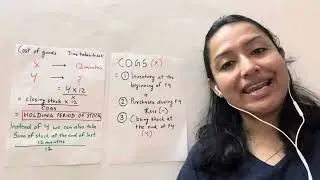 Cost of goods Time taken to sell
X → 12 months
Y → ?
= Y x 12
X
= closing stock x 12
COGS
= HOLDING PERIOD OF STOCK
Instead of Y we can also take
Sum of stock at the end of last
12 months
12
COGS (X)
= ① Inventory at the
beginning of FY
+
② Purchases during FY
(-)
③ Closing stock at
the end of FY
(Y)